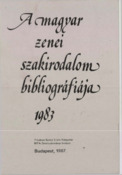 A magyar
zenei
szakirodalom
bibliográfiája
1983
Budapest, 1987